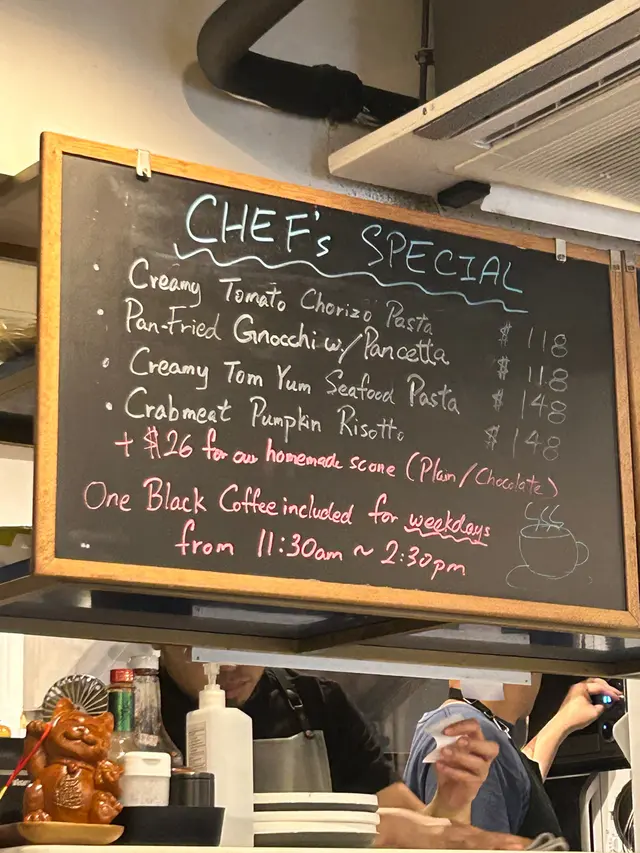 CHEF's SPECIAL
• Creamy Tomato Chorizo Pasta $118
• Pan-Fried Gnocchi w/ Pancetta $118
• Creamy Tom Yum Seafood Pasta $148
• Crabmeat Pumpkin Risotto $148
+ $26 for our homemade scone (Plain/Chocolate)
One Black Coffee included for weekdays
from 11:30am ~ 2:30pm